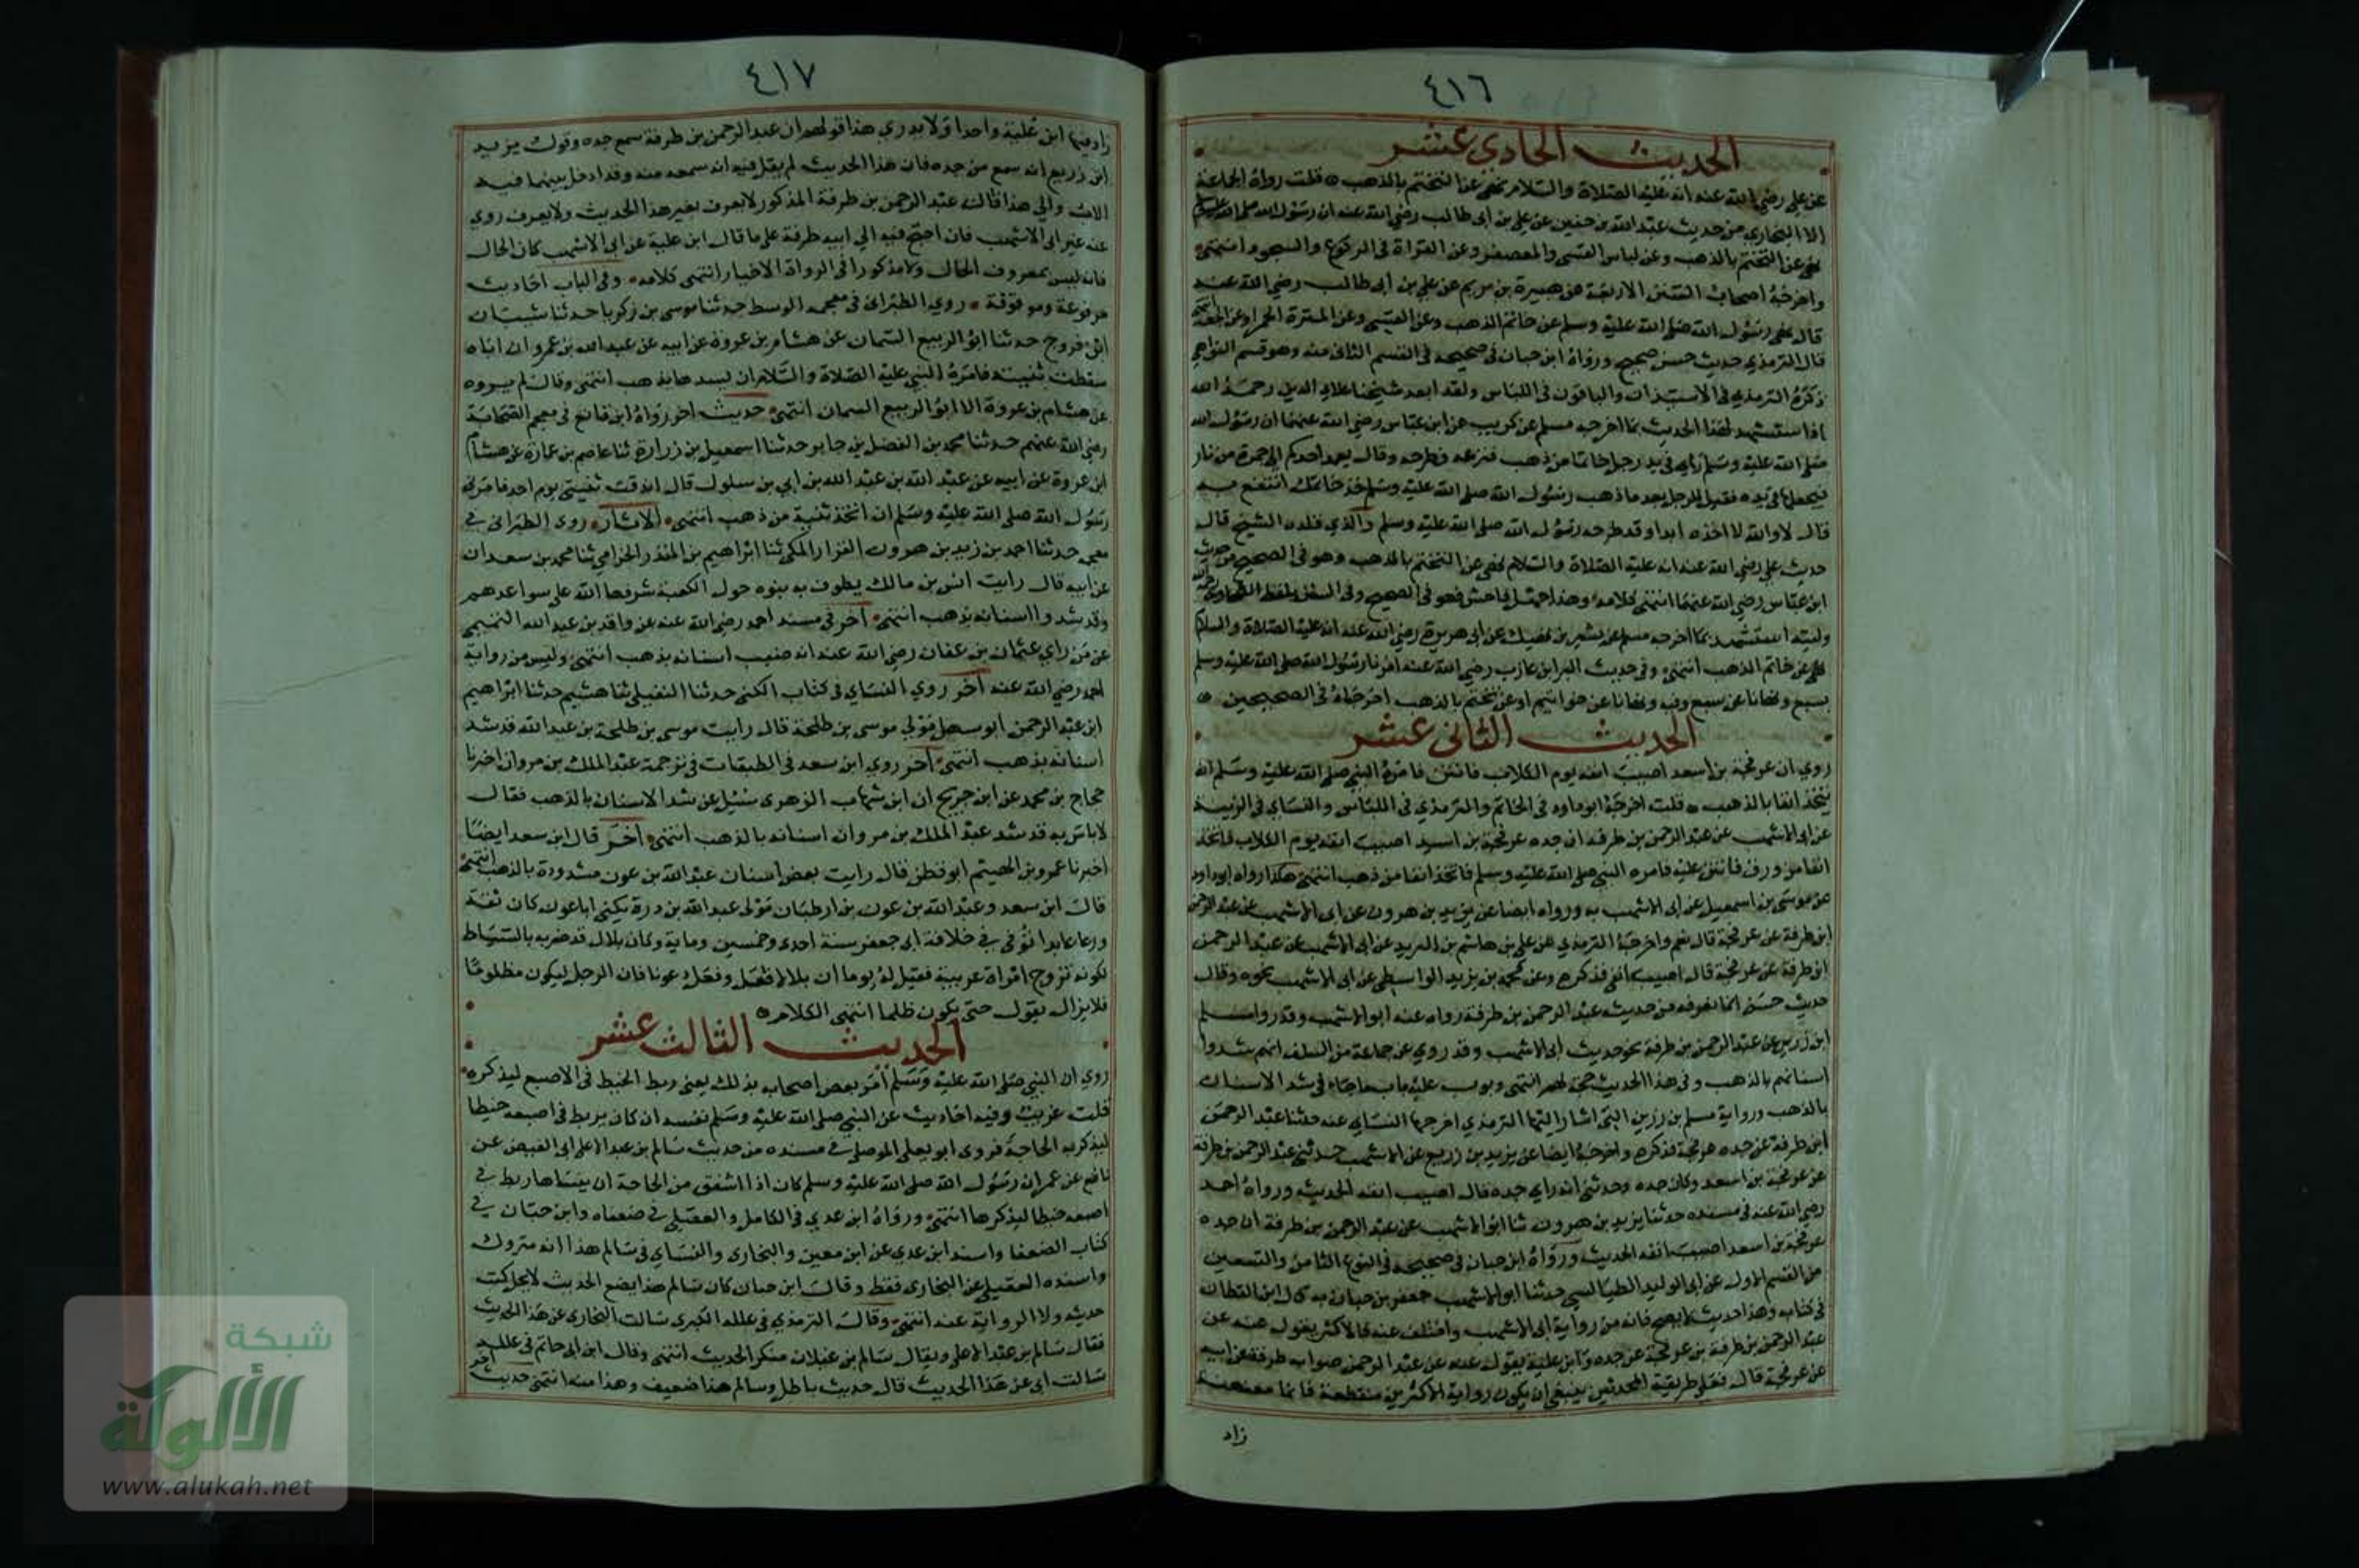 ٤١٦
الحديث الحادي عشر
عن علي رضي الله عنه انه عليه الصلاة والسلام نهى عن التختم بالذهب قلت رواه الجماعة
الا البخاري من حديث عبد الله بن حنين عن علي بن أبي طالب رضي الله عنه ان رسول الله صلى الله عليه وسلم
نهى عن التختم بالذهب وعن لباس القسي والمعصفر وعن القراة في الركوع والسجود انتهى
واخرجه اصحاب السنن الاربعة عن هبيرة بن مريم عن علي بن أبي طالب رضي الله عنه
قال نهى رسول الله صلى الله عليه وسلم عن خاتم الذهب وعن القسي وعن الميثرة الحمراء وعن الجعة
قال الترمذي حديث حسن صحيح ورواه ابن حبان في صحيحه في القسم الثاني منه وهو قسم النواهي
ذكره الترمذي في الاستيذان والباقون في اللباس ولقد ابعد شيخنا علاء الدين رحمه الله
اذا ستشهد لهذا الحديث بما اخرجه مسلم عن كريب عن ابن عباس رضي الله عنهما ان رسول الله
صلى الله عليه وسلم راى في يد رجل خاتما من ذهب فنزعه فطرحه وقال يعمد أحدكم الى جمرة من نار
فيجعلها في يده فقيل للرجل بعد ما ذهب رسول الله صلى الله عليه وسلم خذ خاتمك انتفع به
قال لا والله لا اخذه ابدا وقد طرحه رسول الله صلى الله عليه وسلم والذي قلده الشيخ قال
حديث علي رضي الله عنه انه عليه الصلاة والسلام نهى عن التختم بالذهب وهو في الصحيح من حديث
ابن عباس رضي الله عنهما انتهى كلامه وهذا جهل فاحش فهو في الصحيح وفي السنن بلفظ
وليته استشهد بما اخرجه مسلم عن بشير بن نهيك عن ابي هريرة رضي الله عنه انه عليه الصلاة والسلام
نهى عن خاتم الذهب انتهى وفي حديث البرا بن عازب رضي الله عنه امرنا رسول الله صلى الله عليه وسلم
بسبع ونهانا عن سبع وفيه ونهانا عن خواتيم او عن تختم بالذهب اخرجاه في الصحيحين
الحديث الثاني عشر
روي ان عرفجة بن أسعد اصيب انفه يوم الكلاب فانتن فامره النبي صلى الله عليه وسلم ان
يتخذ انفا بالذهب قلت اخرجه ابوداود في الخاتم والترمذي في اللباس والنساي في الزينة
عن ابي الاشهب عن عبد الرحمن بن طرفة ان جده عرفجة بن اسعد اصيب انفه يوم الكلاب فاتخذ
انفا من ورق فانتن عليه فامره النبي صلى الله عليه وسلم فاتخذ انفا من ذهب انتهى هكذا رواه ابوداود
عن موسى بن اسمعيل عن ابي الاشهب به ورواه ايضا عن يزيد بن هرون عن ابي الاشهب عن عبد الرحمن
ابن طرفة عن عرفجة قال نعم واخرجه الترمذي عن علي بن هاشم بن البريد عن ابي الاشهب عن عبد الرحمن
ابن طرفة عن عرفجة قال اصيب انفي فذكره وعن محمد بن يزيد الواسطي عن ابي الاشهب نحوه وقال
حديث حسن انما نعرفه من حديث عبد الرحمن بن طرفة رواه عنه ابو الاشهب وقد رواه سلم
ابن زرير عن عبد الرحمن بن طرفة نحو حديث ابي الاشهب وقد روي عن جماعة من السلف انهم شدوا
اسنانهم بالذهب وفي هذا الحديث حجة لهم انتهى وبوب عليه باب ماجاء في شد الاسنان
بالذهب ورواية سلم بن زرير التي اشار اليها الترمذي اخرجها النساي عنه حدثنا عبد الرحمن
ابن طرفة عن جده عرفجة فذكره واخرجه ايضا عن يزيد بن زريع عن الاشهب حدثني عبد الرحمن بن طرفة
عن عرفجة بن اسعد وكان جده وحدثني انه راى جده قال اصيب انفه الحديث ورواه احمد
رضي الله عنه في مسنده حدثنا يزيد بن هرون ثنا ابو الاشهب عن عبد الرحمن بن طرفة ان جده
عرفجة بن اسعد اصيب انفه الحديث ورواه ابن حبان في صحيحه في النوع الثامن والتسعين
من القسم الاول عن ابي الوليد الطيالسي حدثنا ابو الاشهب جعفر بن حبان به قال ابن القطان
في كتابه وهذا حديث لا يصح فانه من رواية ابي الاشهب واختلف عنه فالاكثر يقول عنه عن
عبد الرحمن بن طرفة بن عرفجة عن جده وابن علية يقول عنه عن عبد الرحمن بن طرفة عن ابيه
عن عرفجة قال فعلى طريقة المحدثين ينبغي ان يكون رواية الاكثرين منقطعة فانها معنعنة
زاد
٤١٧
زاد فيها ابن علية واحدا ولا يدري هذا قولهم ان عبد الرحمن بن طرفة سمع جده وقول يزيد
ابن زريع انه سمع من جده فان هذا الحديث لم يقل فيه انه سمعه منه وقد ادخل بينهما فيه
الاب والى هذا فان عبد الرحمن بن طرفة المذكور لا يعرف بغير هذا الحديث ولا يعرف روى
عنه غير ابي الاشهب فان احتج فيه الى ابيه طرفة على ما قال ابن علية عن ابي الاشهب كان الحال
فانه ليس بمعروف الحال ولا مذكورا في الرواة الاخيار انتهى كلامه وفي الباب احاديث
مرفوعة وموقوفة روى الطبراني في معجمه الوسط حدثنا موسى بن زكريا حدثنا شيبان
ابن فروخ حدثنا ابو الربيع السمان عن هشام بن عروة عن ابيه عن عبد الله بن عمرو ان اباه
سقطت ثنيته فامره النبي عليه الصلاة والسلام ان يشدها بذهب انتهى وقال لم يروه
عن هشام بن عروة الا ابو الربيع السمان انتهى حديث اخر رواه ابن قانع في معجم الصحابة
رضي الله عنهم حدثنا محمد بن الفضل بن جابر حدثنا اسمعيل بن زرارة ثنا عاصم بن عمارة عن هشام
ابن عروة عن ابيه عن عبد الله بن عبد الله بن أبي بن سلول قال اندقت ثنيتي يوم احد فامرني
رسول الله صلى الله عليه وسلم ان اتخذ ثنية من ذهب انتهى الاثار روى الطبراني في
معجمه حدثنا احمد بن زيد بن هرون القزاز المكي ثنا ابراهيم بن المنذر الحزامي ثنا محمد بن سعدان
عن ابيه قال رايت انس بن مالك يطوف به بنوه حول الكعبة شرفها الله على سواعدهم
وقد شدوا اسنانه بذهب انتهى اخر في مسند احمد رضي الله عنه عن واقد بن عبد الله التميمي
عن من راى عثمان بن عفان رضي الله عنه انه ضبب اسنانه بذهب انتهى وليس من رواية
احمد رضي الله عنه اخر روى النساي في كتاب الكنى حدثنا النفيلي ثنا هشيم حدثنا ابراهيم
ابن عبد الرحمن ابو سهل مولى موسى بن طلحة قال رايت موسى بن طلحة بن عبيد الله قد شد
اسنانه بذهب انتهى اخر روى ابن سعد في الطبقات في ترجمة عبد الملك بن مروان اخبرنا
حجاج بن محمد عن ابن جريج ان ابن شهاب الزهري سئل عن شد الاسنان بالذهب فقال
لا باس به قد شد عبد الملك بن مروان اسنانه بالذهب انتهى اخر قال ابن سعد ايضا
اخبرنا عمرو بن الهيثم ابو قطن قال رايت بعض اسنان عبد الله بن عون مشدودة بالذهب انتهى
قال ابن سعد وعبد الله بن عون بن ارطبان مولى عبد الله بن درة يكنى اباعون كان ثقة
ورعا عابدا توفي في خلافة ابي جعفر سنة احدى وخمسين وماية وكان بلال قد ضربه بالسياط
لكونه تزوج امراة عربية فقيل له يوما ان بلالا فعل وفعل عونا فان الرجل ليكون مظلوما
فلا يزال يقول حتى يكون ظلما انتهى الكلام
الحديث الثالث عشر
روي ان النبي صلى الله عليه وسلم أمر بعض اصحابه بذلك يعني ربط الخيط في الاصبع ليذكره
قلت غريب وفيه احاديث عن النبي صلى الله عليه وسلم نفسه ان كان يربط في اصبعه خيطا
ليذكر به الحاجة فروى ابو يعلى الموصلي في مسنده من حديث سالم بن عبد الاعلى ابي الفيض عن
نافع عن عمر ان رسول الله صلى الله عليه وسلم كان اذا اشفق من الحاجة ان ينساها ربط في
اصبعه خيطا ليذكرها انتهى ورواه ابن عدي في الكامل والعقيلي في ضعفاه وابن حبان في
كتاب الضعفا واسند ابن عدي عن ابن معين والبخاري والنساي في سالم هذا انه متروك
واسنده العقيلي عن البخاري فقط وقال ابن حبان كان سالم هذا يضع الحديث لا يحل كتب
حديثه ولا الرواية عنه انتهى وقال الترمذي في علله الكبرى سالت البخاري عن هذا الحديث
فقال سالم بن عبد الاعلى ويقال سالم بن غيلان منكر الحديث انتهى وقال ابن ابي حاتم في علله
سالت ابي عن هذا الحديث قال حديث باطل وسالم هذا ضعيف وهذا منه انتهى حديث اخر
شبكة
الألوكة
www.alukah.net